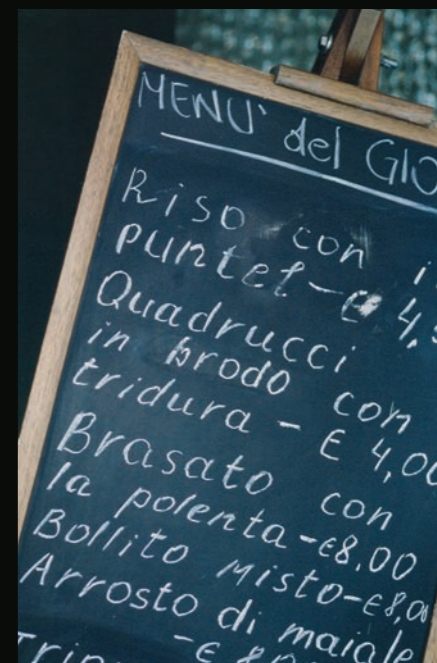 MENU' del GIO
Riso con i
puntel - € 4,
Quadrucci
in brodo con
tridura - € 4,00
Brasato con
la polenta - €8,00
Bollito misto - €8,00
Arrosto di maiale
- € 8
Trip